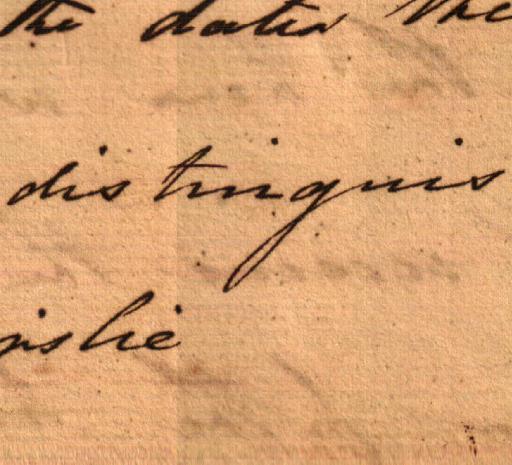 the dates the
distinguis
nslie